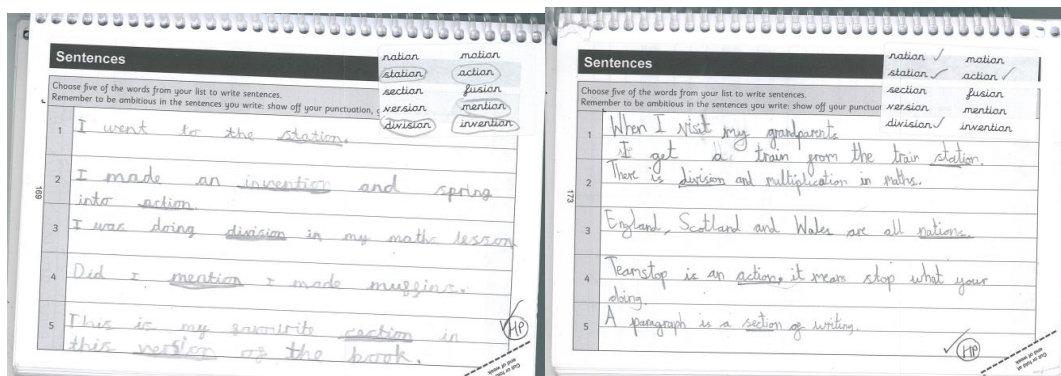 Sentences
nation motion
station action
section fusion
version mention
division invention
Choose five of the words from your list to write sentences.
Remember to be ambitious in the sentences you write: show off your punctuation,
1 I went to the station.
2 I made an invention and spring
into action.
3 I was doing division in my maths lesson
4 Did I mention I made muffins.
5 This is my favourite section in
this version of the book.
HP
169
Cut or fold
end of week
Sentences
nation ✓ motion
station ✓ action ✓
section fusion
version mention
division ✓ invention
Choose five of the words from your list to write sentences.
Remember to be ambitious in the sentences you write: show off your punctuation
1 When I visit my grandparents
I get a train from the train station.
2 There is division and multiplication in maths.
3 England, Scotland and Wales are all nations.
4 Teamstop is an action, it means stop what your
doing.
5 A paragraph is a section of writing.
HP
173
Cut or fold
end of week